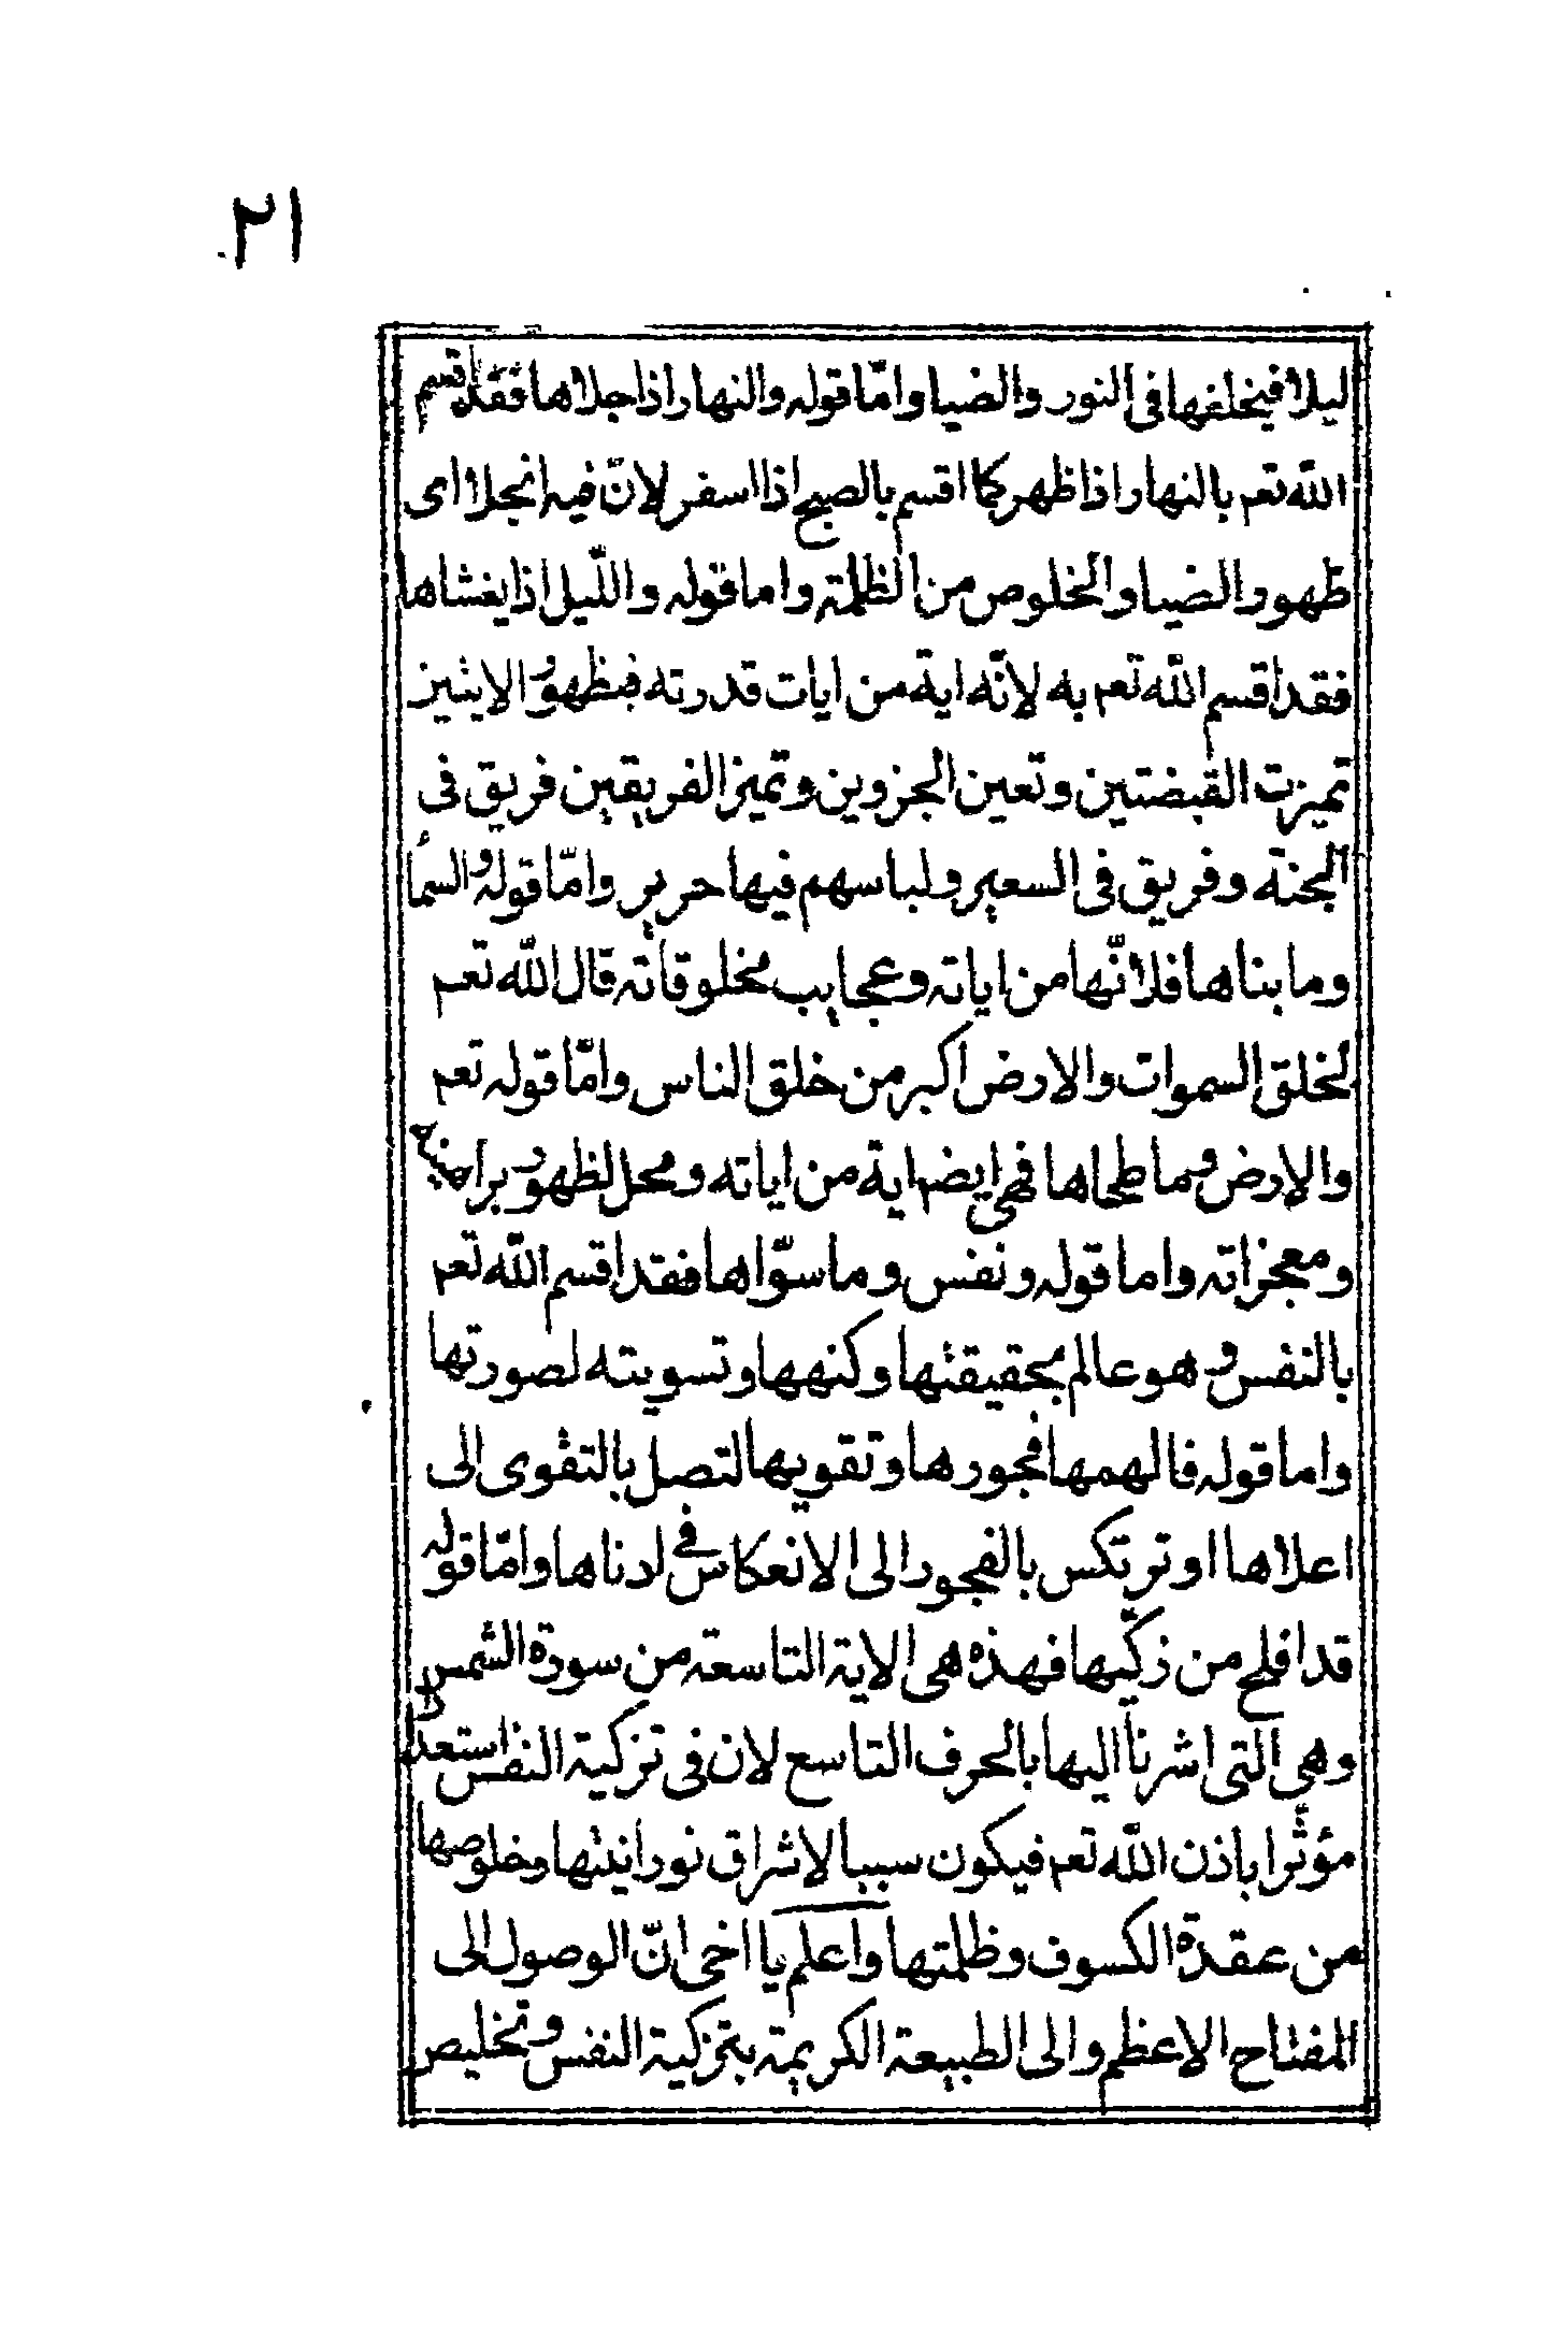 ٢١
ليلا فيخلفها فى النور والضيا وامّا قوله والنهار اذا جلاها فقد اقسم
الله تعم بالنهار اذا ظهر كما اقسم بالصبح اذا اسفر لانّ فيه انجلا اى
ظهور الضيا والخلوص من الظلمة واما قوله والّليل اذا يغشاها
فقد اقسم الله تعم به لانّه اية من ايات قدرته فبظهور الايتين
تميزت القبضتين وتعين الجزوين وتميز الفريقين فريق فى
الجنة وفريق فى السعير ولباسهم فيها حرير وامّا قوله والسمأ
وما بناها فلانّها من اياته وعجايب مخلوقاته قال الله تعم
لخلق السموات والارض اكبر من خلق الناس وامّا قوله تعم
والارض وما طحاها فهى ايضا اية من اياته ومحل لظهور براهينه
ومعجزاته واما قوله ونفس وما سوّاها فقد اقسم الله تعم
بالنفس وهو عالم بحقيقتها وكنهها وتسويته لصورتها
واما قوله فالهمها فجورها وتقويها لتصل بالتقوى الى
اعلاها او ترتكس بالفجور الى الانعكاس فى ادناها وامّا قوله
قد افلح من زكّيها فهذه هى الاية التاسعة من سورة الشمس
وهى التى اشرنا اليها بالحرف التاسع لان فى تزكية النفس استعدادا
مؤثّرا باذن الله تعم فيكون سببا لاشراق نورانيتها وخلوصها
من عقدة الكسوف وظلمتها واعلم يا اخى انّ الوصول الى
المفتاح الاعظم والى الطبيعة الكريمة بتزكية النفس وتخليص